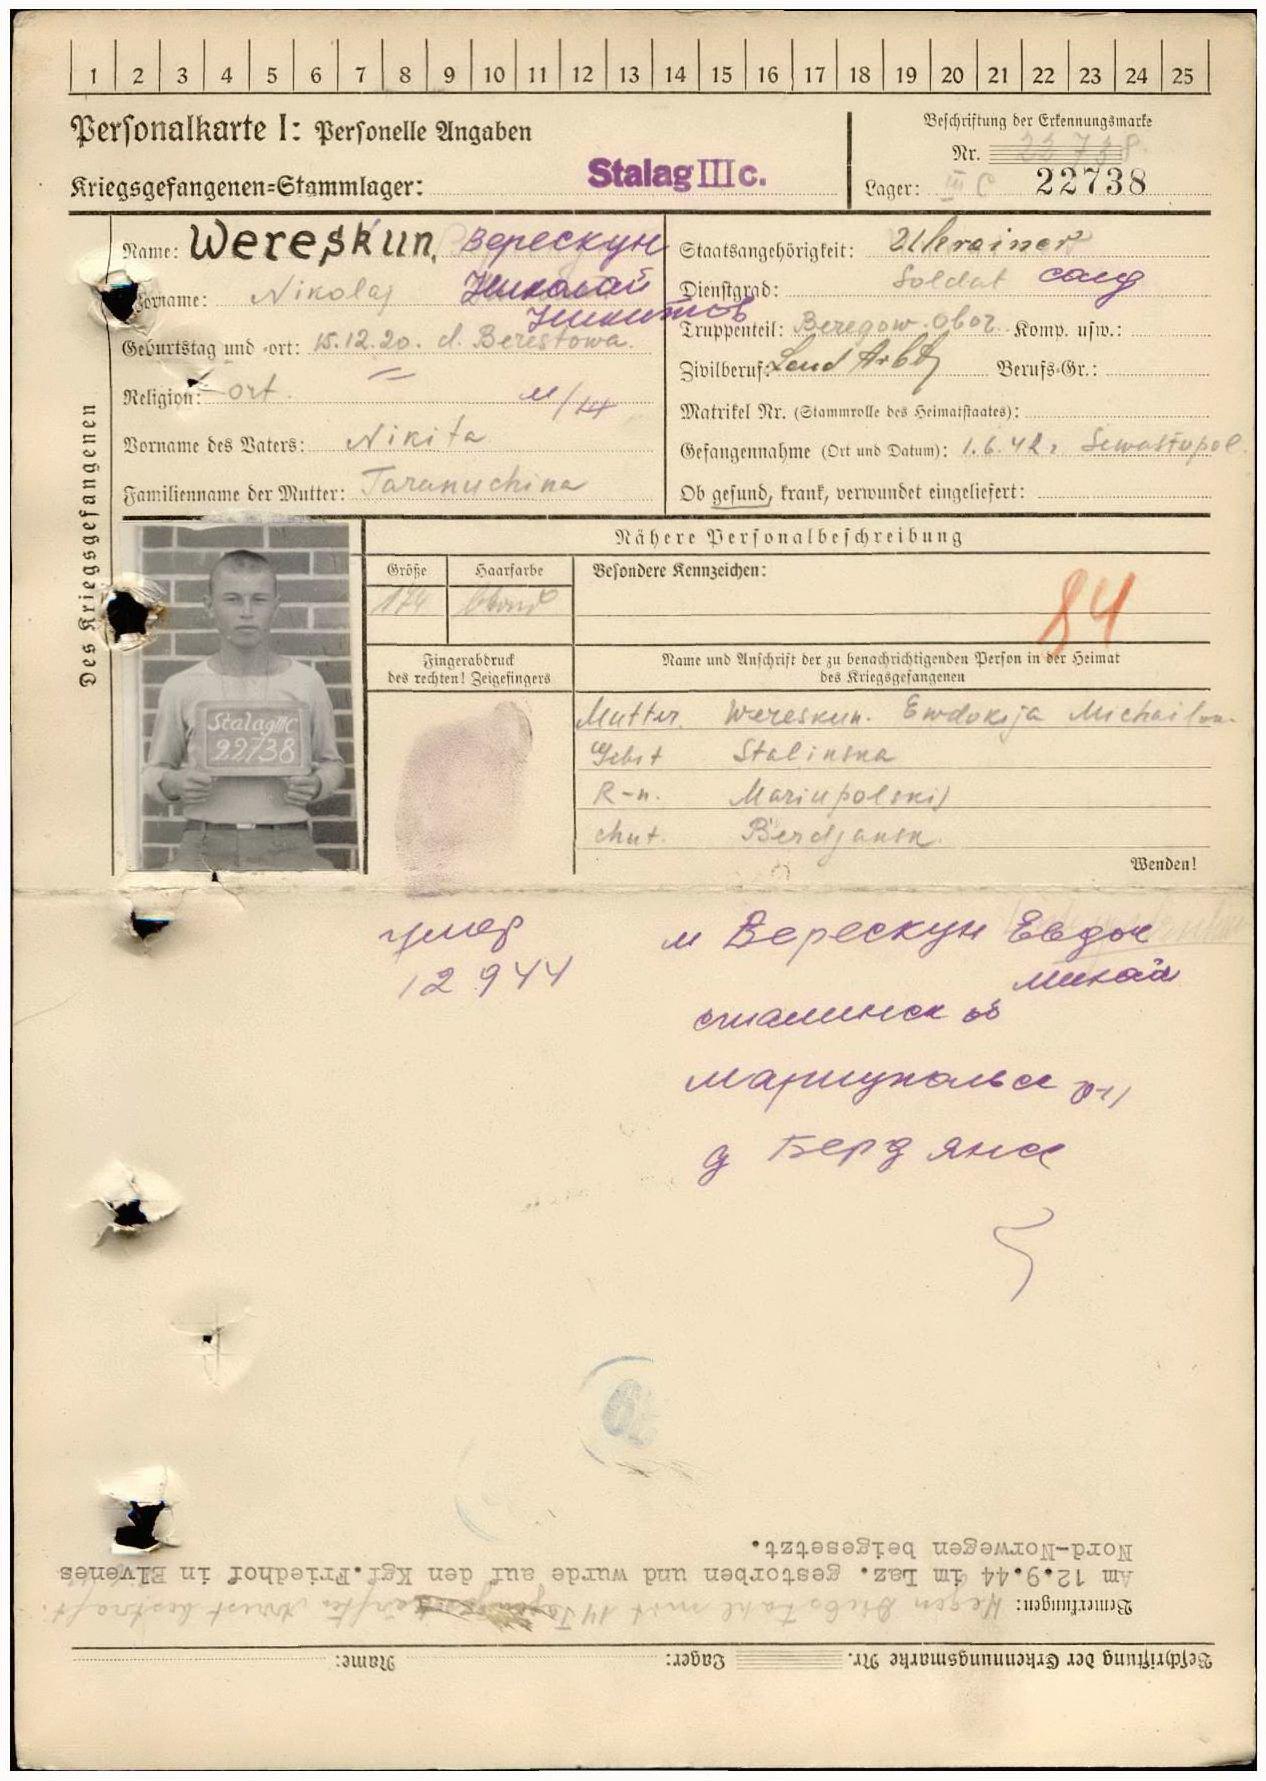 1 2 3 4 5 6 7 8 9 10 11 12 13 14 15 16 17 18 19 20 21 22 23 24 25
Personalkarte I: Personelle Angaben
Kriegsgefangenen=Stammlager: Stalag III c.
Beschriftung der Erkennungsmarke
Nr. 22738.
Lager: III C 22738
Des Kriegsgefangenen
Name: Wereskun, Верескун
Vorname: Nikolaj Николай
Никитов
Geburtstag und -ort: 15.12.20. d. Berestowa.
Religion: ort.
Vorname des Vaters: Nikita
Familienname der Mutter: Taranuchina
Staatsangehörigkeit: Ukrainer
Dienstgrad: Soldat солд
Truppenteil: Beregow. Obor. Komp. usw.:
Zivilberuf: Land Arb Berufs-Gr.:
Matrikel Nr. (Stammrolle des Heimatstaates):
Gefangennahme (Ort und Datum): 1.6.42. Sewastopol.
Ob gesund, krank, verwundet eingeliefert:
Nähere Personalbeschreibung
Größe Haarfarbe Besondere Kennzeichen:
174 blond
84
Fingerabdruck
des rechten! Zeigefingers
Name und Anschrift der zu benachrichtigenden Person in der Heimat
des Kriegsgefangenen
Stalag III C
22738
Mutter. Wereskun. Ewdokija Michailow.
Gebit Stalinska
R-n. Mariupolskij
chut. Berdjansk.
Wenden!
умер
12 9 44
м Верескун Евдок
Михай
сталинск об
Мариупольск р-н
д Бердянск
Beschriftung der Erkennungsmarke Nr. Lager: Name:
Bemerkungen: Wegen Diebstahl mit 14 Tagen Arrest bestraft.
Am 12.9.44 im Laz. gestorben und wurde auf den Kgf.Friedhof in Elvenes
Nord-Norwegen beigesetzt.